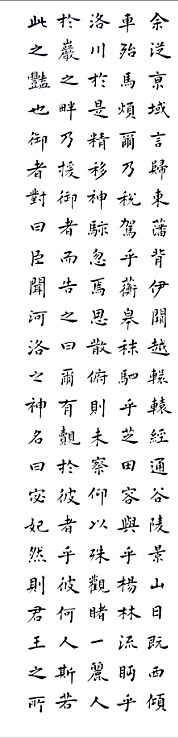 余從京域言歸東藩背伊闕越轘轅經通谷陵景山日既西傾
車殆馬煩爾乃稅駕乎蘅皋秣駟乎芝田容與乎楊林流眄乎
洛川於是精移神駭忽焉思散俯則未察仰以殊觀睹一麗人
於巖之畔乃援御者而告之曰爾有覿於彼者乎彼何人斯若
此之豔也御者對曰臣聞河洛之神名曰宓妃然則君王之所